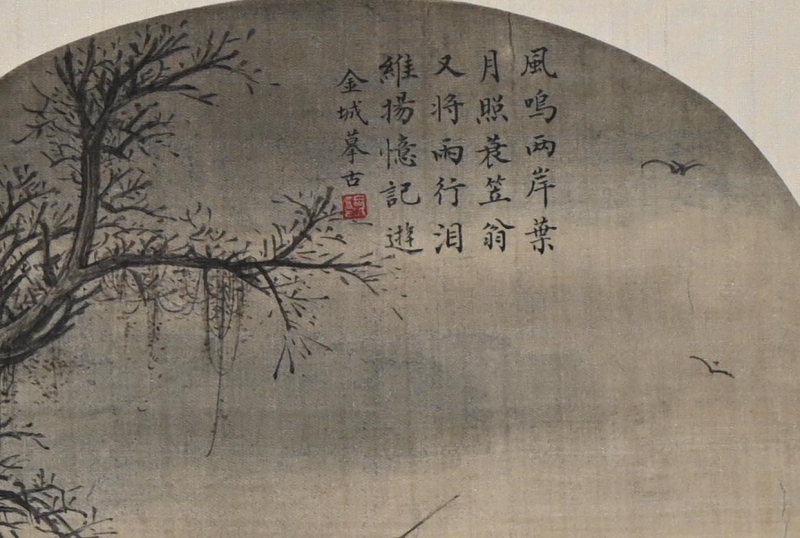 風鳴兩岸葉
月照蓑笠翁
又將雨行泪
維揚憶記遊
金城摹古